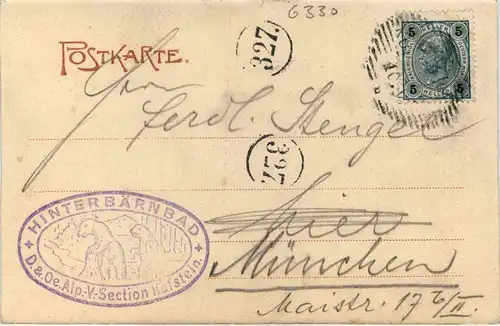 6330
POSTKARTE.
327.
5 5
5 HELLER 5
Herrn
Ferdl. Stenger
327
hier
München
Maistr. 17 b/II.
HINTERBÄRNBAD
D. & Oe. Alp.-V.-Section Kufstein.